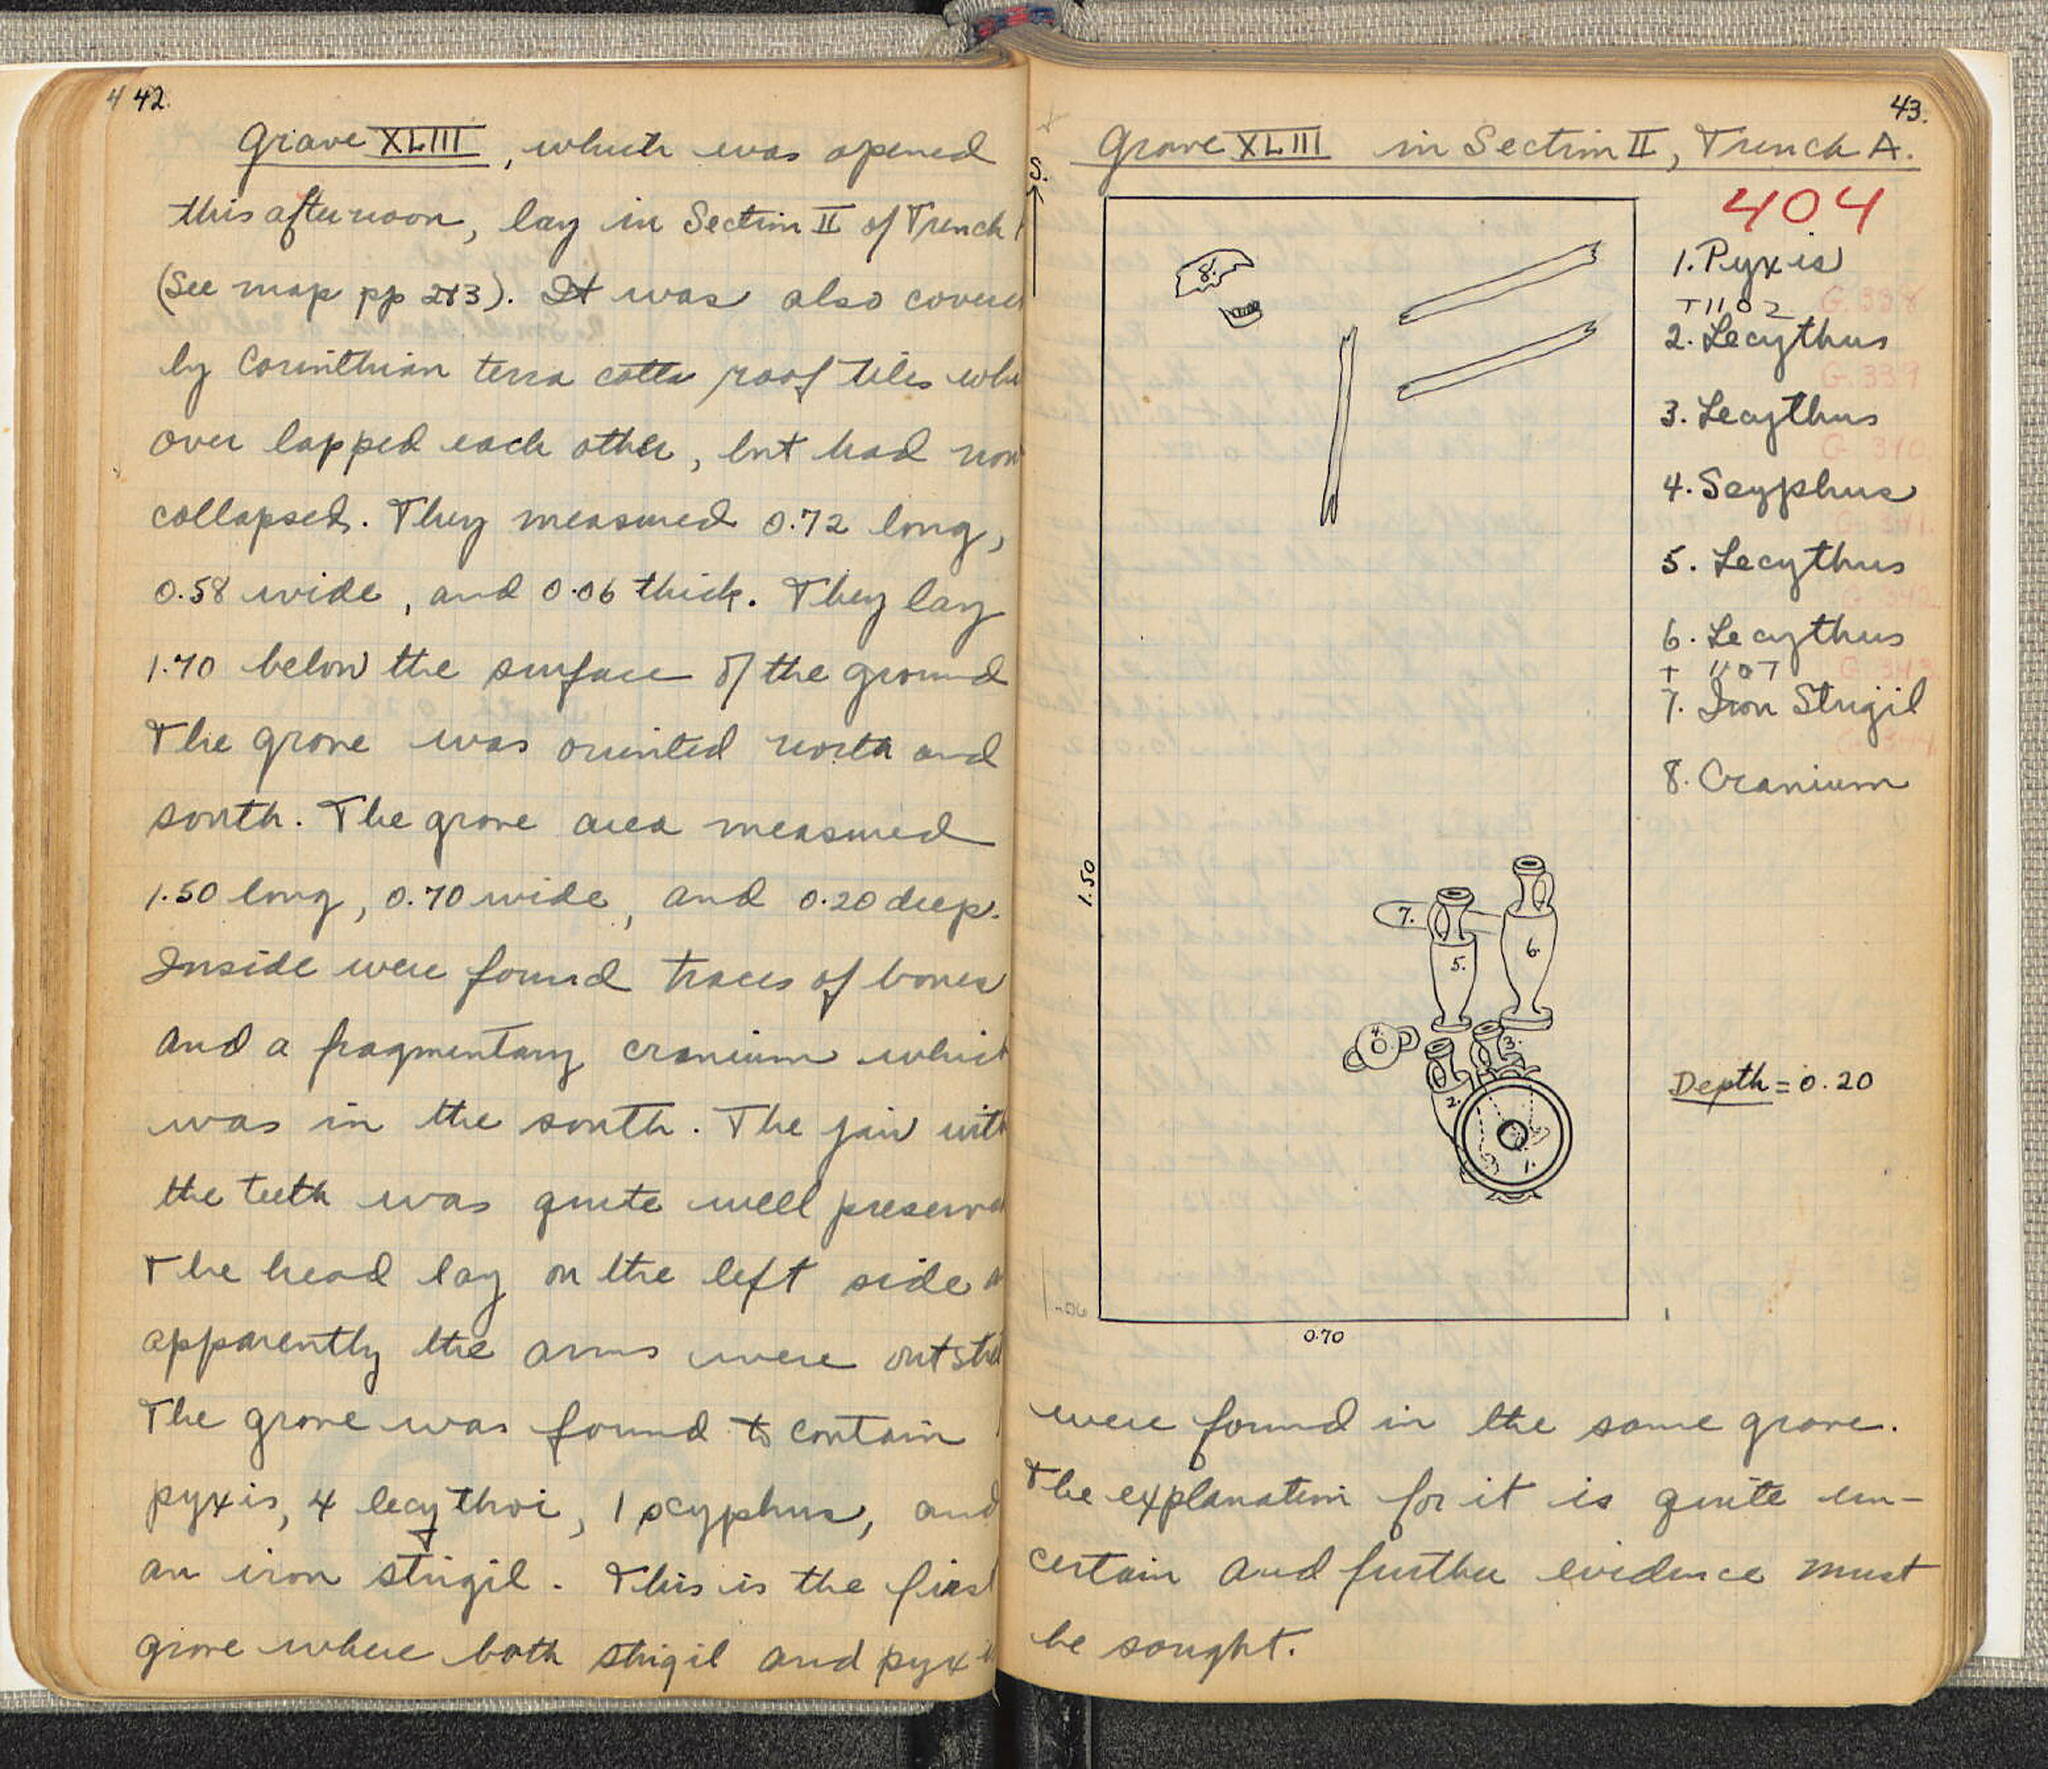 442.
Grave XLIII, which was opened
this afternoon, lay in Section II of Trench
(See map pp 2&3). It was also covere
by Corinthian terra cotta roof tiles whi
over lapped each other, but had now
collapsed. They measured 0.72 long,
0.58 wide, and 0.06 thick. They lay
1.70 below the surface of the ground
The grave was oriented north and
south. The grave area measured
1.50 long, 0.70 wide, and 0.20 deep.
Inside were found traces of bones
and a fragmentary cranium which
was in the south. The jaw with
the teeth was quite well preserve
The head lay on the left side a
apparently the arms were outstre
The grave was found to contain
pyxis, 4 lecythoi, 1 scyphus, and
an iron strigil. This is the first
grave where both strigil and pyxis
43.
Grave XLIII in Section II, Trench A.
S.
404
1. Pyxis
T 1102
G. 338
2. Lecythus
G. 339
3. Lecythus
G. 340
4. Scyphus
G. 341.
5. Lecythus
G. 342
6. Lecythus
T 1107
G. 343
7. Iron Strigil
G. 344
8. Cranium
8.
1.50
7.
5.
6.
4.
3.
2.
1.
Depth = 0.20
0.70
were found in the same grave.
The explanation for it is quite un-
certain and further evidence must
be sought.